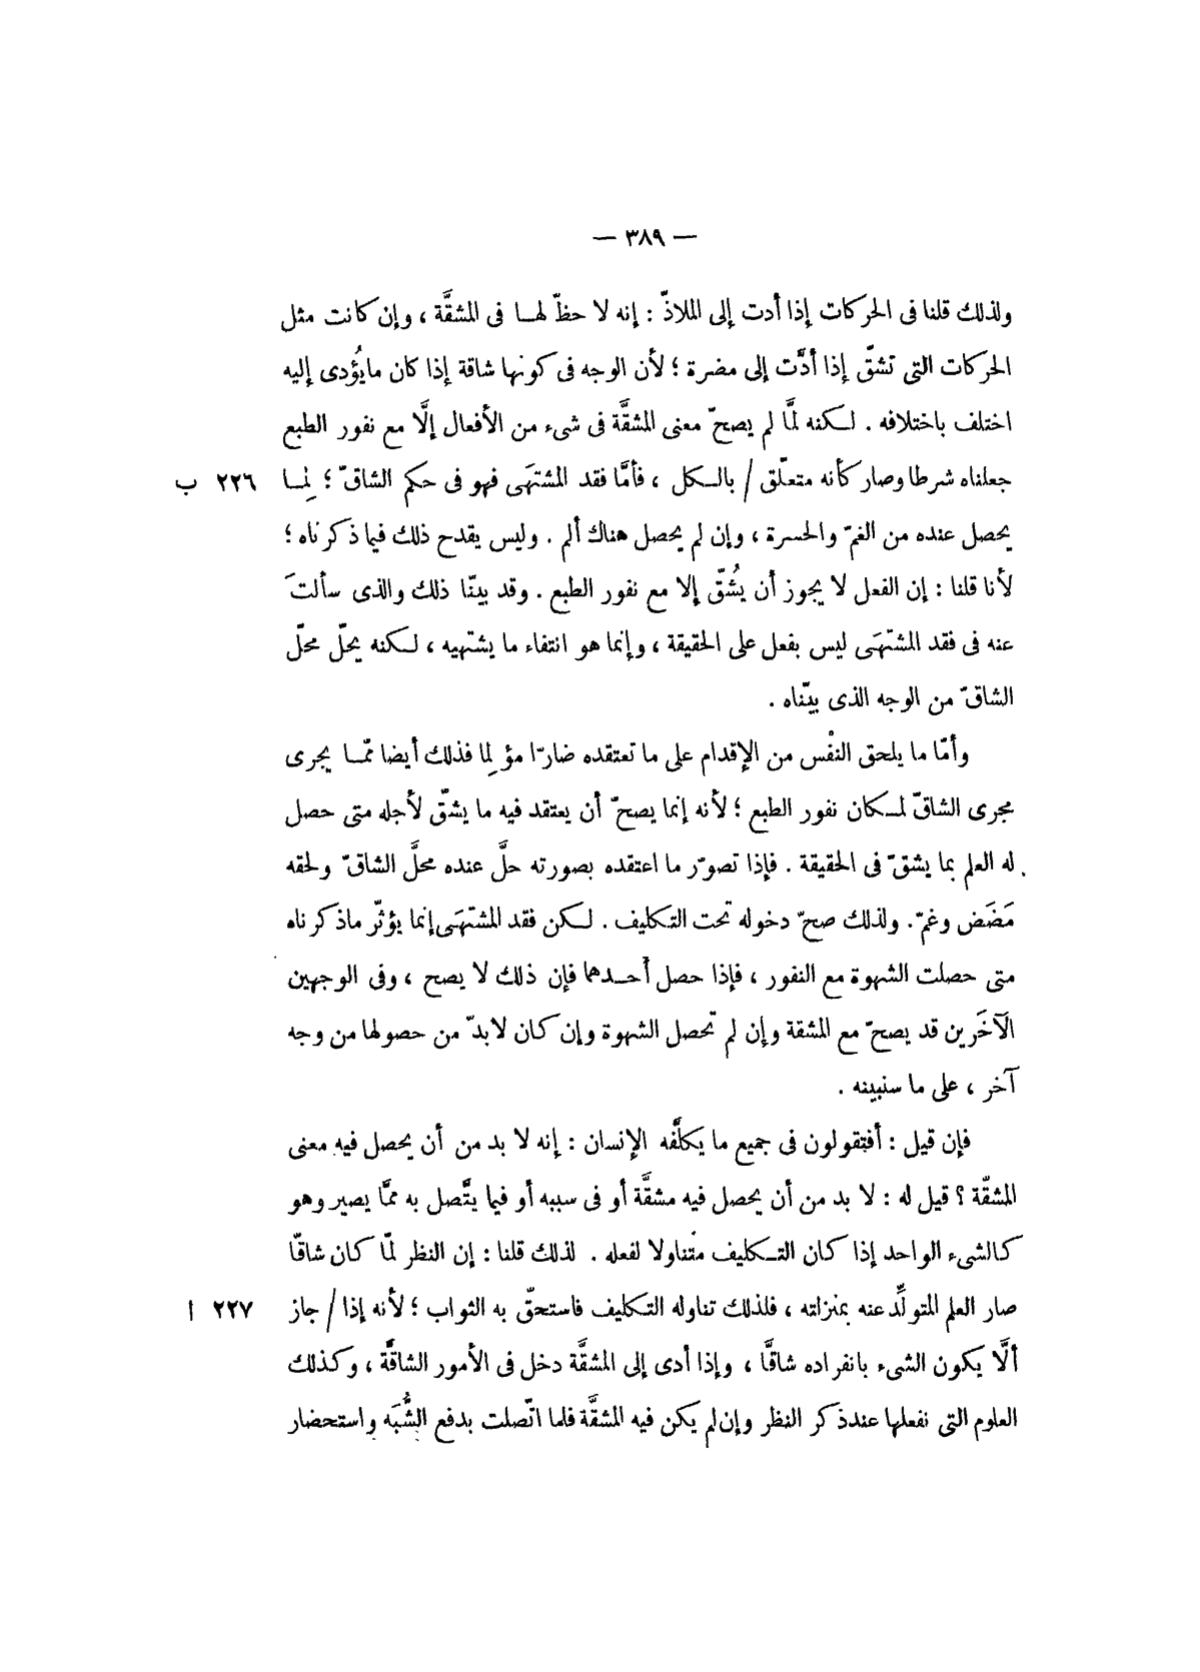 — ٣٨٩ —
ولذلك قلنا فى الحركات إذا أدت إلى الملاذّ : إنه لا حظّ لهـا فى المشقَّة ، وإن كانت مثل
الحركات التى تشقّ إذا أدَّت إلى مضرة ؛ لأن الوجه فى كونها شاقة إذا كان مايُؤدى إليه
اختلف باختلافه . لـكنه لمَّا لم يصحّ معنى المشقَّة فى شىء من الأفعال إلَّا مع نفور الطبع
جعلناه شرطا وصار كأنه متعلّق / بالـكل ، فأمَّا فقد المشتهَى فهو فى حكم الشاقّ ؛ لِمـا ٢٢٦ ب
يحصل عنده من الغمّ والحسرة ، وإن لم يحصل هناك ألم . وليس يقدح ذلك فيما ذكرناه ؛
لأنا قلنا : إن الفعل لا يجوز أن يُشقّ إلا مع نفور الطبع . وقد بينّا ذلك والذى سألتَ
عنه فى فقد المشتهَى ليس بفعل على الحقيقة ، وإنما هو انتفاء ما يشتهيه ، لـكنه يحلّ محلّ
الشاقّ من الوجه الذى بيّناه .
وأمّا ما يلحق النفْس من الإقدام على ما تعتقده ضارّا مؤلِما فذلك أيضا ممّـا يجرى
مجرى الشاقّ لمـكان نفور الطبع ؛ لأنه إنما يصحّ أن يعتقد فيه ما يشقّ لأجله متى حصل
له العلم بما يشقّ فى الحقيقة . فإذا تصوّر ما اعتقده بصورته حلَّ عنده محلَّ الشاقّ ولحقه
مَضَض وغمّ . ولذلك صحّ دخوله تحت التكليف . لـكن فقد المشتهَى إنما يؤثّر ماذكرناه
متى حصلت الشهوة مع النفور ، فإذا حصل أحـدهما فإن ذلك لا يصح ، وفى الوجهين
الآخَرين قد يصحّ مع المشقة وإن لم تحصل الشهوة وإن كان لابدّ من حصولها من وجه
آخر ، على ما سنبينه .
فإن قيل : أفتقولون فى جميع ما يكلَّفه الإنسان : إنه لا بد من أن يحصل فيه معنى
المشقّة ؟ قيل له : لا بد من أن يحصل فيه مشقَّة أو فى سببه أو فيما يتَّصل به ممَّا يصير وهو
كالشىء الواحد إذا كان التـكليف متناولا لفعله . لذلك قلنا : إن النظر لمّا كان شاقّا
صار العلم المتولِّد عنه بمنزلته ، فلذلك تناوله التكليف فاستحقّ به الثواب ؛ لأنه إذا / جاز ٢٢٧ ا
ألَّا يكون الشىء بانفراده شاقًّا ، وإذا أدى إلى المشقَّة دخل فى الأمور الشاقَّة ، وكذلك
العلوم التى نفعلها عندذكر النظر وإن لم يكن فيه المشقَّة فلما اتّصلت بدفع الشُّبَه واستحضار